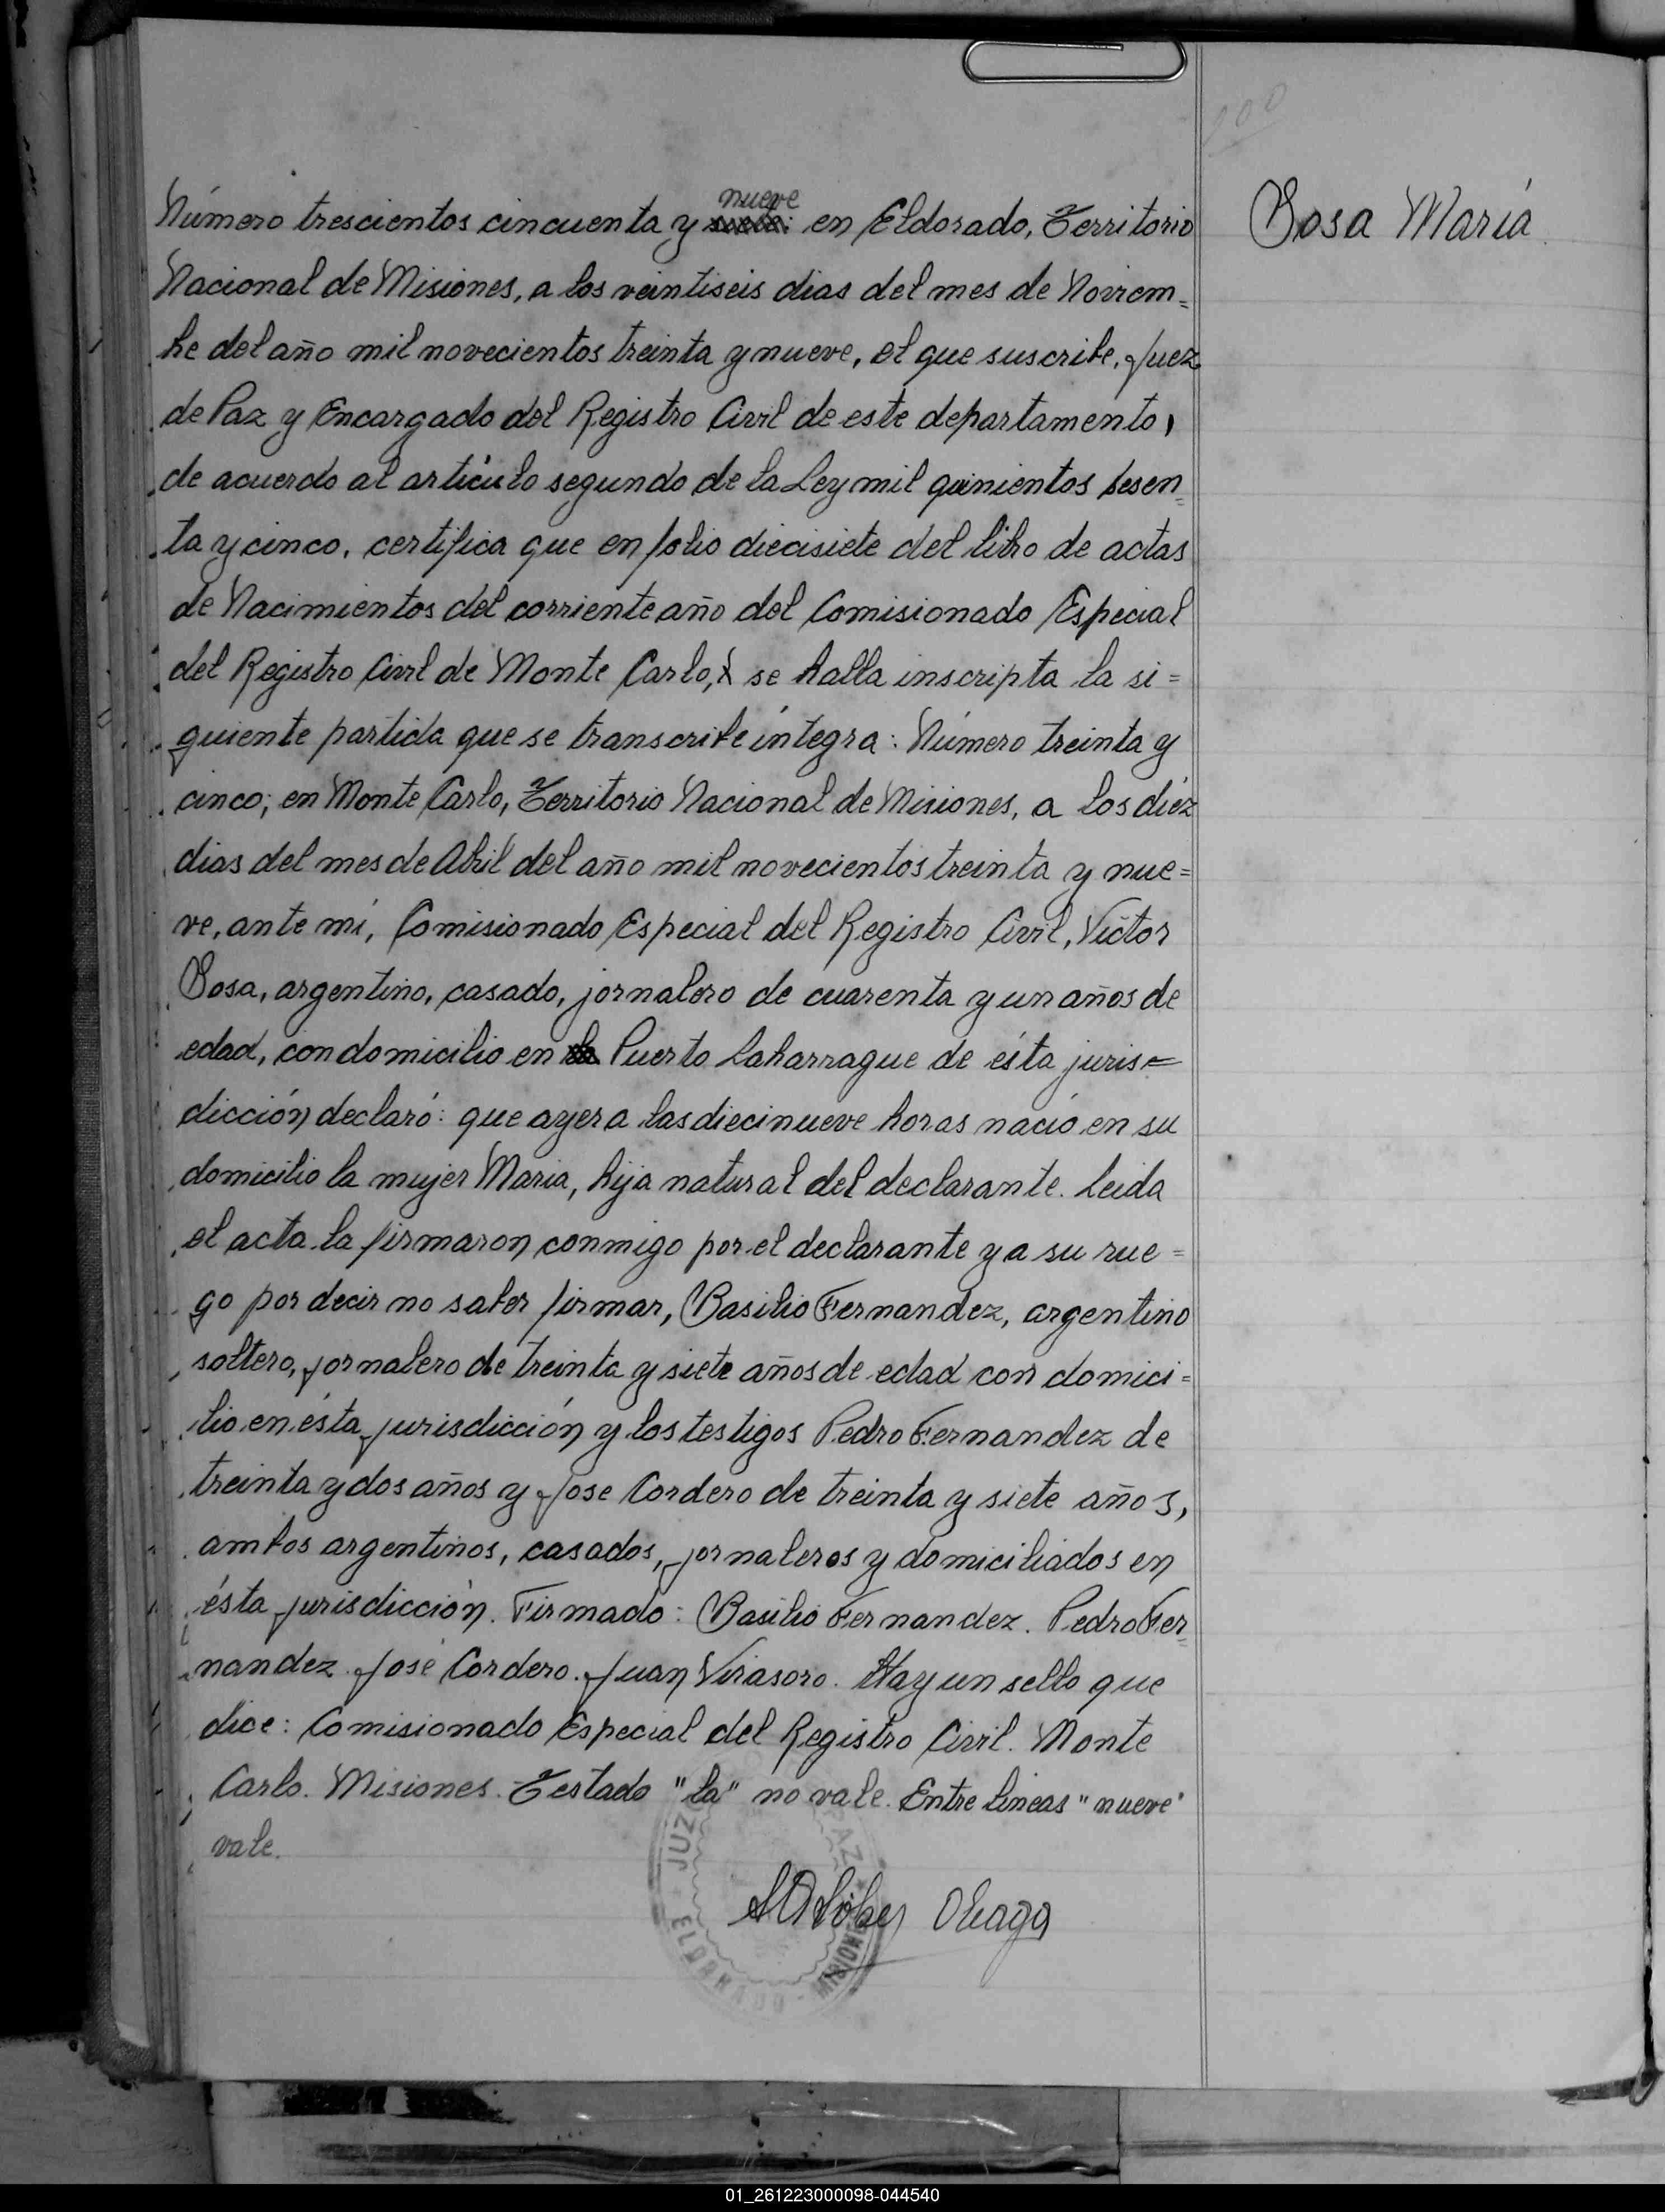 Número trescientos cincuenta y nueve en Eldorado, Territorio
Nacional de Misiones, a los veintiseis dias del mes de Noviem=
bre del año mil novecientos treinta y nueve, el que suscribe, Juez
de Paz y Encargado del Registro Civil de este departamento,
de acuerdo al artículo segundo de la Ley mil quinientos sesen=
ta y cinco, certifica que en folio diecisiete del libro de actas
de Nacimientos del corriente año del Comisionado Especial
del Registro Civil de Monte Carlo, se halla inscripta la si=
guiente partida que se transcribe íntegra: Número treinta y
cinco; en Monte Carlo, Territorio Nacional de Misiones, a los diez
dias del mes de Abril del año mil novecientos treinta y nue=
ve, ante mí, Comisionado Especial del Registro Civil, Victor
Sosa, argentino, casado, jornalero de cuarenta y un años de
edad, con domicilio en Puerto Laharrague de ésta juris=
dicción declaró: que ayer a las diecinueve horas nació en su
domicilio la mujer Maria, hija natural del declarante. Leida
el acta la firmaron conmigo por el declarante y a su rue=
go por decir no saber firmar, Basilio Fernandez, argentino
soltero, jornalero de treinta y siete años de edad con domici=
lio en ésta jurisdicción y los testigos Pedro Fernandez de
treinta y dos años y Jose Cordero de treinta y siete años,
ambos argentinos, casados, jornaleros y domiciliados en
ésta jurisdicción. Firmado: Basilio Fernandez. Pedro Fer=
nandez. José Cordero. Juan Virasoro. Hay un sello que
dice: Comisionado Especial del Registro Civil. Monte
Carlo. Misiones. Testado "la" no vale. Entre lineas "nueve"
vale.
Sosa María
200
JUZ AZ
ELDORADO MISIONES
01_261223000098-044540